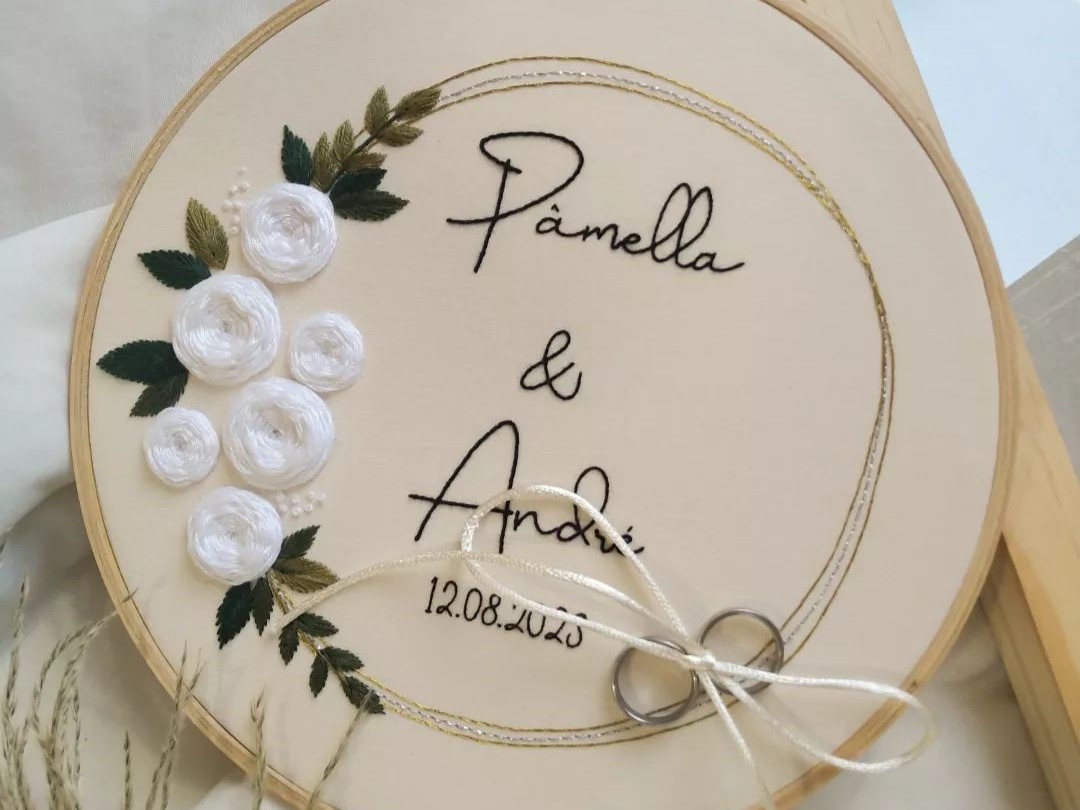 Pâmella
&
André
12.08.2023